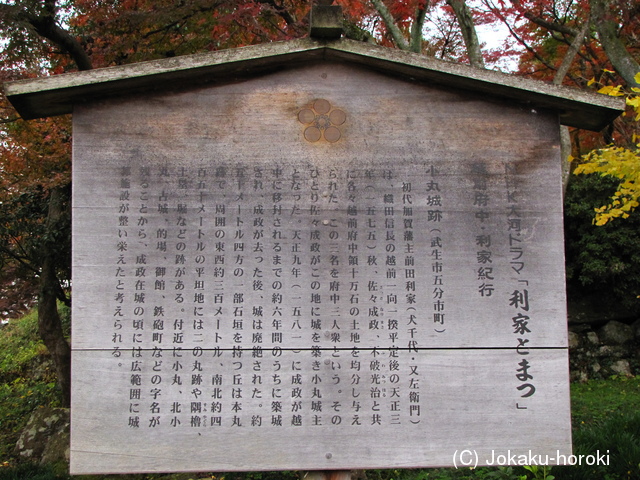 NHK大河ドラマ「利家とまつ」
府中・利家紀行
小丸城跡(武生市五分市町)
初代加賀藩主前田利家(犬千代・又左衛門)
は、織田信長の越前一向一揆平定後の天正三
年(一五七五)秋、佐々成政、不破光治と共
に各々越前府中領十万石の土地を均分し与え
られた。この三名を府中三人衆という。その
ひとり佐々成政がこの地に城を築き小丸城主
となった。天正九年(一五八一)に成政が越
中に移封されるまでの約六年間のうちに築城
され、成政が去った後、城は廃絶された。約
五十メートル四方の一部石垣を持つ丘は本丸
跡で、周囲の東西約三百メートル、南北約四
百五十メートルの平坦地には二の丸跡や隅櫓、
土塁、堀などの跡がある。付近に小丸、北小
丸、古城、的場、御館、鉄砲町などの字名が
残ることから、成政在城の頃には広範囲に城
郭施設が整い栄えたと考えられる。
(C) Jokaku-horoki